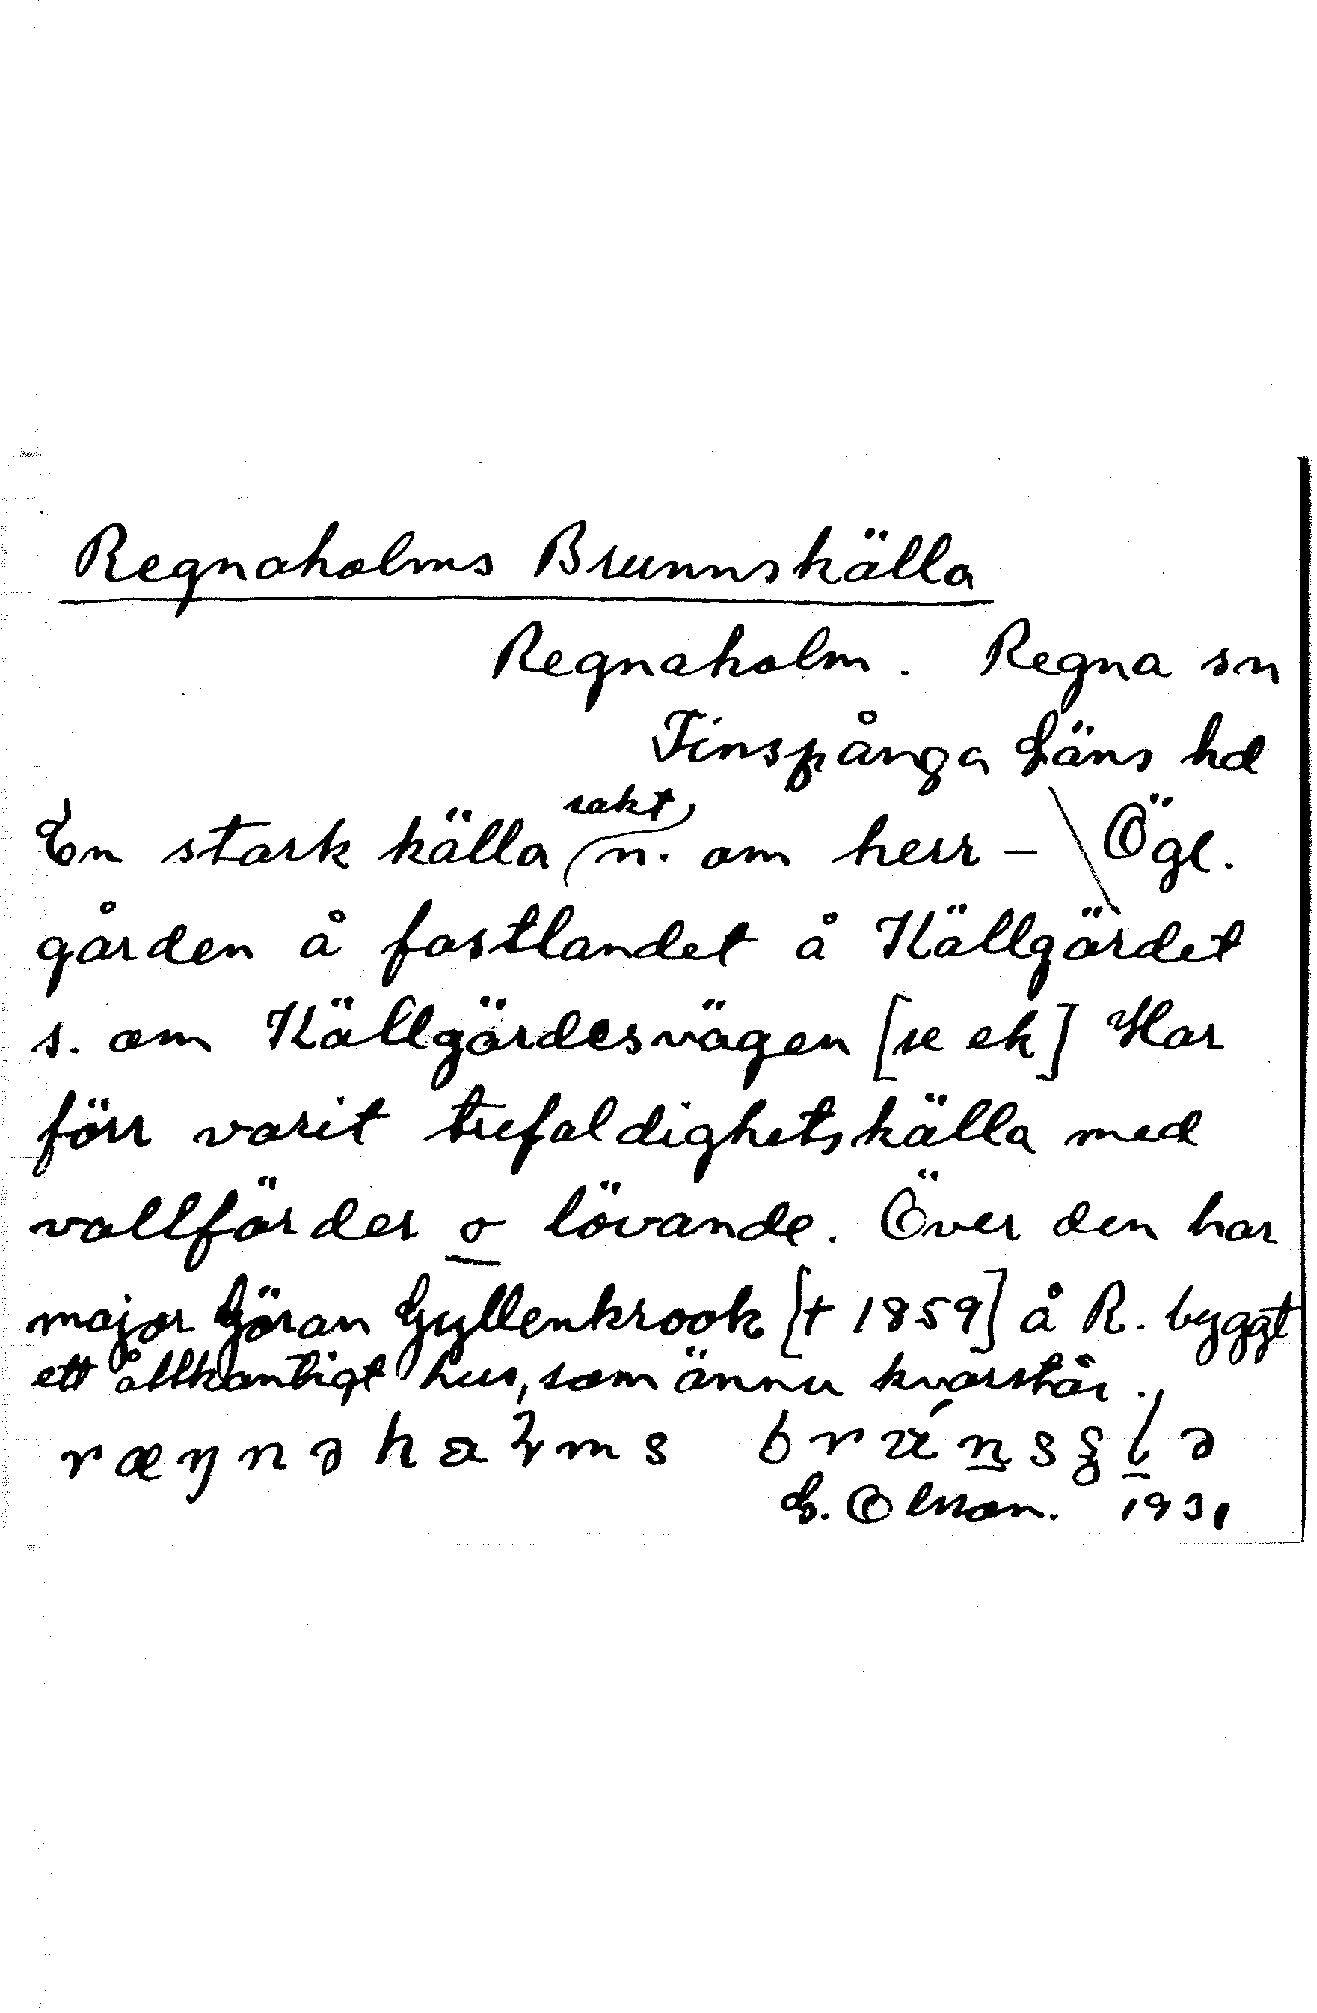 Regnaholms Brunnskälla
Regnaholm. Regna sn
Finspånga Läns hd
Ögl.
En stark källa rakt n. om herr-
gården å fastlandet å Källgärdet
s. om Källgärdesvägen [se ek] Har
förr varit trefaldighetskälla med
vallfärder o lövande. Över den har
major Göran Gyllenkrook [† 1859] å R. byggt
ett åttkantigt hus, som ännu kvarstår.
E. Olsson. 1931